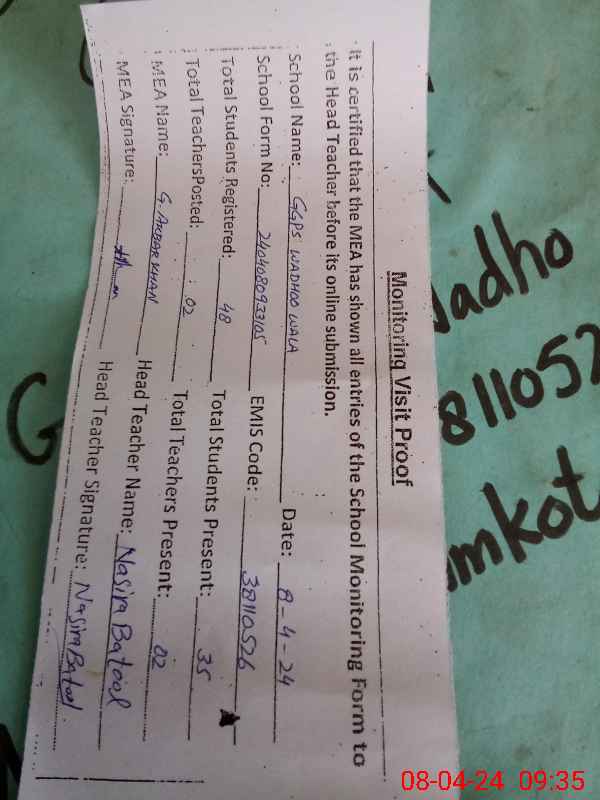 Monitoring Visit Proof
It is certified that the MEA has shown all entries of the School Monitoring Form to
the Head Teacher before its online submission.
School Name: GGPS WADHOO WALA Date: 8-4-24
School Form No: 2404080933105 EMIS Code: 38110526
Total Students Registered: 48 Total Students Present: 35
Total TeachersPosted: 02 Total Teachers Present: 02
MEA Name: G. AKBAR KHAN Head Teacher Name: Nasira Batool
MEA Signature: Head Teacher Signature: Nasira Batool
adho
811052
mkot
G
08-04-24 09:35